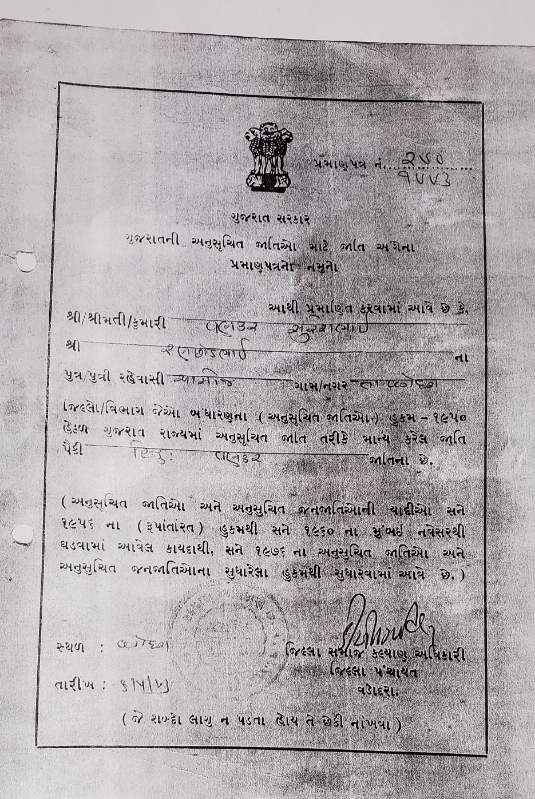 પ્રમાણપત્ર નં. ૨૪૦
ગુજરાત સરકાર
ગુજરાતની અનુસૂચિત જાતિઓ માટે જાતિ અંગેના
પ્રમાણપત્રનો નમુનો
આથી પ્રમાણિત કરવામાં આવે છે કે,
શ્રી/શ્રીમતી/કુમારી વણકર સુરેશભાઈ
શ્રી રણછોડભાઈ ના
પુત્ર/પુત્રી રહેવાસી ગામ/નગર
જિલ્લા/વિભાગ જેઓ બંધારણના (અનુસૂચિત જાતિઓ) હુકમ - ૧૯૫૦
હેઠળ ગુજરાત રાજ્યમાં અનુસૂચિત જાતિ તરીકે માન્ય કરેલ જાતિ
પૈકી હિન્દુ વણકર જાતિના છે.
(અનુસૂચિત જાતિઓ અને અનુસૂચિત જનજાતિઓની યાદીઓ સને
૧૯૫૬ ના (રૂપાંતરિત) હુકમથી સને ૧૯૬૦ ના મુંબઈ નવેસરથી
ઘડવામાં આવેલ કાયદાથી, સને ૧૯૭૬ ના અનુસૂચિત જાતિઓ અને
અનુસૂચિત જનજાતિઓના સુધારેલા હુકમથી સુધારવામાં આવે છે.)
સ્થળ : વડોદરા
જિલ્લા સમાજ કલ્યાણ અધિકારી
જિલ્લા પંચાયત
તારીખ :
વડોદરા.
(જે શબ્દો લાગુ ન પડતા હોય તે છેકી નાંખવા)